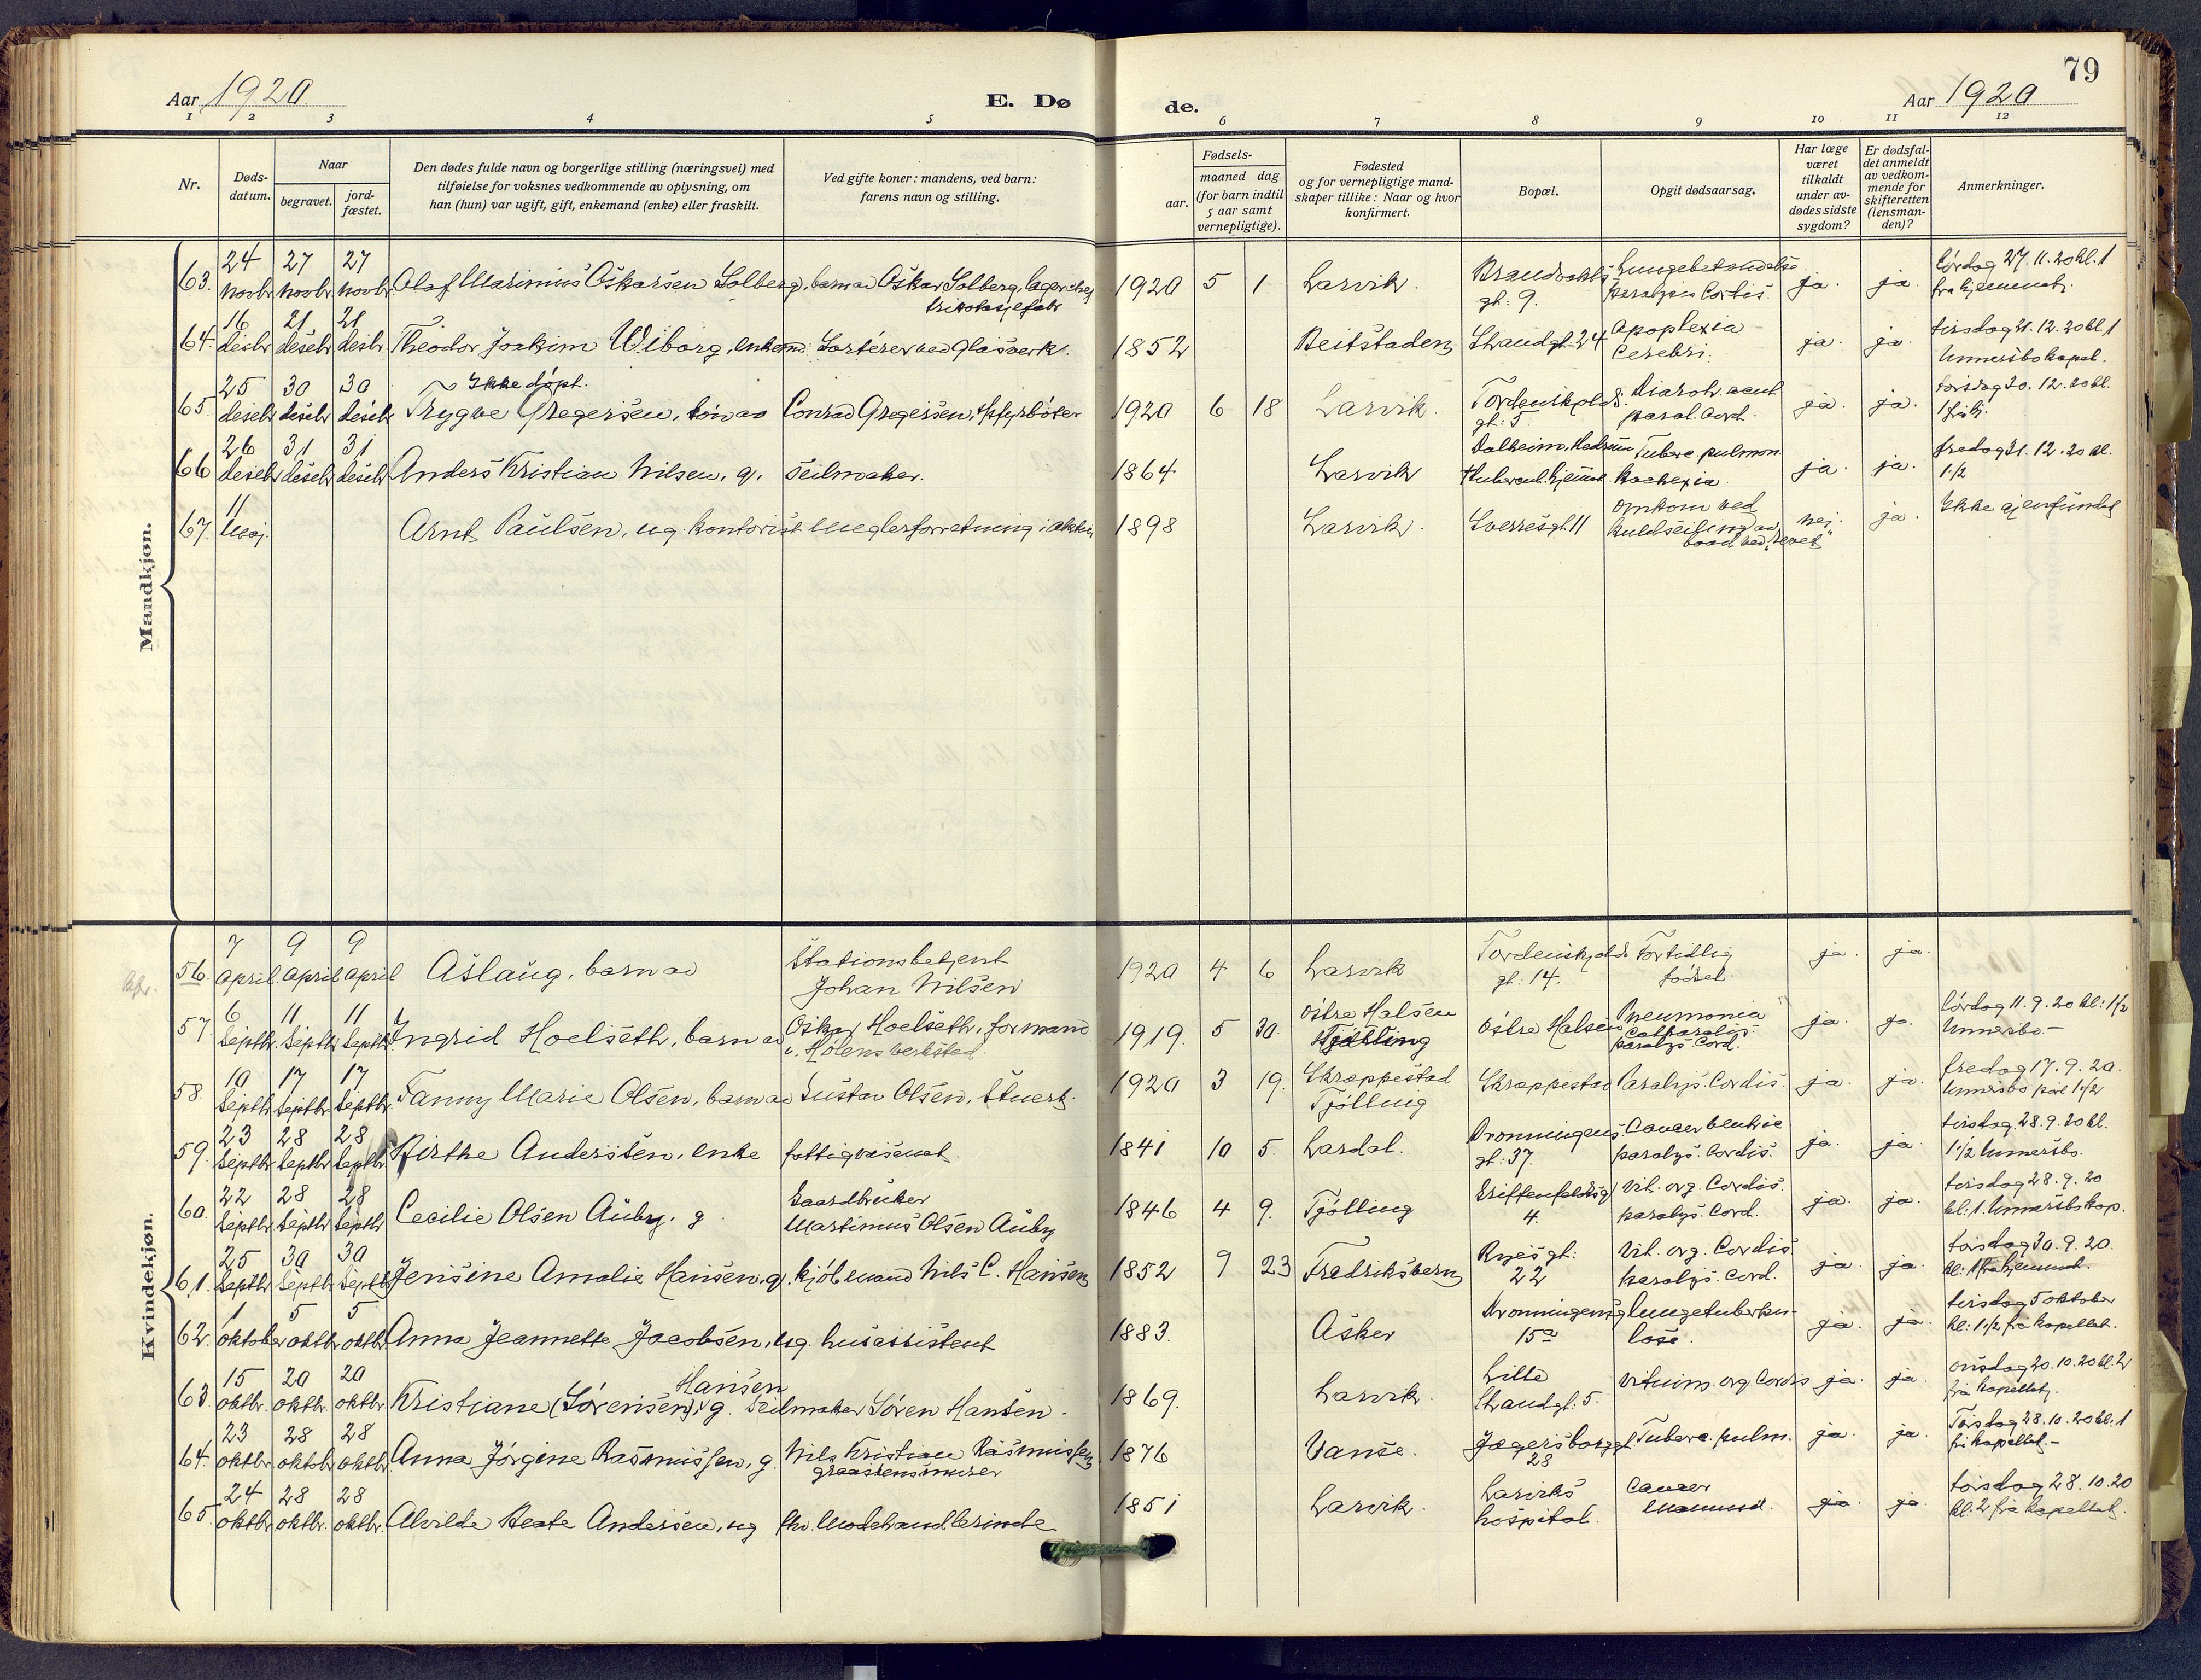 79
Aar 1920
E. Dø
de.
Aar 1920
1 2 3 4 5 6 7 8 9 10 11 12
Nr.
Døds-
datum.
Naar
begravet.
jord-
fæstet.
Den dødes fulde navn og borgerlige stilling (næringsvei) med
tilføielse for voksnes vedkommende av oplysning, om
han (hun) var ugift, gift, enkemand (enke) eller fraskilt.
Ved gifte koner: mandens, ved barn:
farens navn og stilling.
Fødsels-
aar.
maaned dag
(for barn indtil
5 aar samt
vernepligtige).
Fødested
og for vernepligtige mand-
skaper tillike: Naar og hvor
konfirmert.
Bopæl.
Opgit dødsaarsag.
Har læge
været
tilkaldt
under av-
dødes sidste
sygdom?
Er dødsfal-
det anmeldt
av vedkom-
mende for
skifteretten
(lensman-
den)?
Anmerkninger.
Mandkjøn.
24 27 27
63. novbr novbr novbr Olaf Marinius Oskarsen Solberg, barn av Oskar Solberg, lagerchef
trikotasjefabr
1920 5 1 Larvik. gt. 9. Lungebetændelse
paralysis Cordis. ja. ja. lørdag 27.11.20 kl. 1
fra hjemmet.
16 21 21
64. desbr desebr desbr Theodor Joakim Wiborg, enkem. Sorterer ved Glasverk.
1852 Beitstaden Strandgt. 24 Apoplexia
Cerebri. ja. ja. tirsdag 21.12.20 kl. 1
Unnersbo kapel.
25 30 30 Ikke døpt.
65. desebr desebr desebr Trygve Gregersen, søn av Conrad Gregersen, fyrbøter
1920 6 18 Larvik. Tordenskjolds
gt: 5. Diaroh. acut
paral. Cord. ja. ja. torsdag 30.12.20 kl.
26 31 31
66 desebr desebr desebr Anders Kristian Nilsen, g. seilmaker.
1864 Larvik Dalheim, Hedrum
tubercul. hjemmet Tuberc. pulmon.
Kachexia. ja. ja. fredag 31.12.20 kl.
1 1/2
11
67. Maj. Arnt Paulsen, ug. kontorist meglerforretning i aktier
1898 Larvik. Sverresgt. 11 Omkom ved
kuldseiling av
baad ved "revet" nei. ja. Ikke gjenfundet
Kvindekjøn.
7 9 9
56. april april april Aslaug, barn av Stationsbetjent
Johan Nilsen
1920 4 6 Larvik Tordenskjolds
gt: 14. For tidlig
fødsel. ja. ja.
6 11 11
57. Septbr. Septbr Septbr Ingrid Hoelseth, barn av Oskar Hoelseth, formand
v. Hølens verksted.
1919. 5 30. Østre Halsen
Tjølling Østre Halsen Pneumonia
paralys. Cord. ja. ja. lørdag 11.9.20 kl: 1 1/2
Unnersbo -
10 17 17
58. Septbr Septbr Septbr. Fanny Marie Olsen, barn av Gustav Olsen, Stuert.
1920 3 19. Skræppestad
Tjølling Skræppestad Paralys. Cordis. ja. ja. fredag 17.9.20.
23 28 28
59. Septbr Septbr Septbr Birthe Anderssen, enke fattigvæsenet.
1841 10 5. Lardal. Dronningens
gt: 37. Cancer ventric
paralys. Cordis. ja. ja. tirsdag 28.9.20 kl.
1 1/2 Unnersbo.
22 28 28
60. Septbr Septbr Septbr Cecilie Olsen Auby, g. Gaardbruker
Martinus Olsen Auby
1846 4 9. Tjølling Griffenfeldtsgt
4. Vit. org. Cordis.
paralys. Cord. ja. ja. tirsdag 28.9.20
kl: 1. Unnersbo kap.
25 30 30
61. Septbr Septbr Septbr Jensine Amalie Hansen, g. kjøbmand Nils C. Hansen
1852 9 23 Fredriksvern Ryesgt:
22 Vit. org. Cordis
paralys. Cord. ja. ja. torsdag 30.9.20.
kl: 1 fra hjemmet.
1 5 5
62. oktober oktbr oktbr. Anna Jeannette Jacobsen, ug. husassistent
1883. Asker Dronningensgt
15a lungetuberku-
lose. ja. ja. tirsdag 5 oktober
kl: 1 1/2 fra kapellet.
15 20 20 Hansen
63. oktbr. oktbr. oktbr. Kristiane (Sørensen), g. Seilmaker Søren Hansen.
1869. Larvik. Lille
Strandgt. 5. Vitium. org. Cordis ja. ja. onsdag 20.10.20 kl. 2
fra kapellet.
23 28 28
64. oktbr. oktobr oktbr. Anna Jørgine Rasmussen, g. Nils Kristian Rasmussen
graastensmurer
1876 Vanse. Jegersborggt.
28 Tuberc. pulm. ja. ja. Torsdag 28.10.20 kl. 1
fra kapellet. -
24 28 28
65. oktbr. oktbr. oktbr. Alvilde Beate Andersen, ug fhv. Modehandlerinde
1851 Larvik. Larviks
hospital. Cancer
Mammæ. ja. ja. torsdag 28.10.20
kl: 2 fra kapellet.